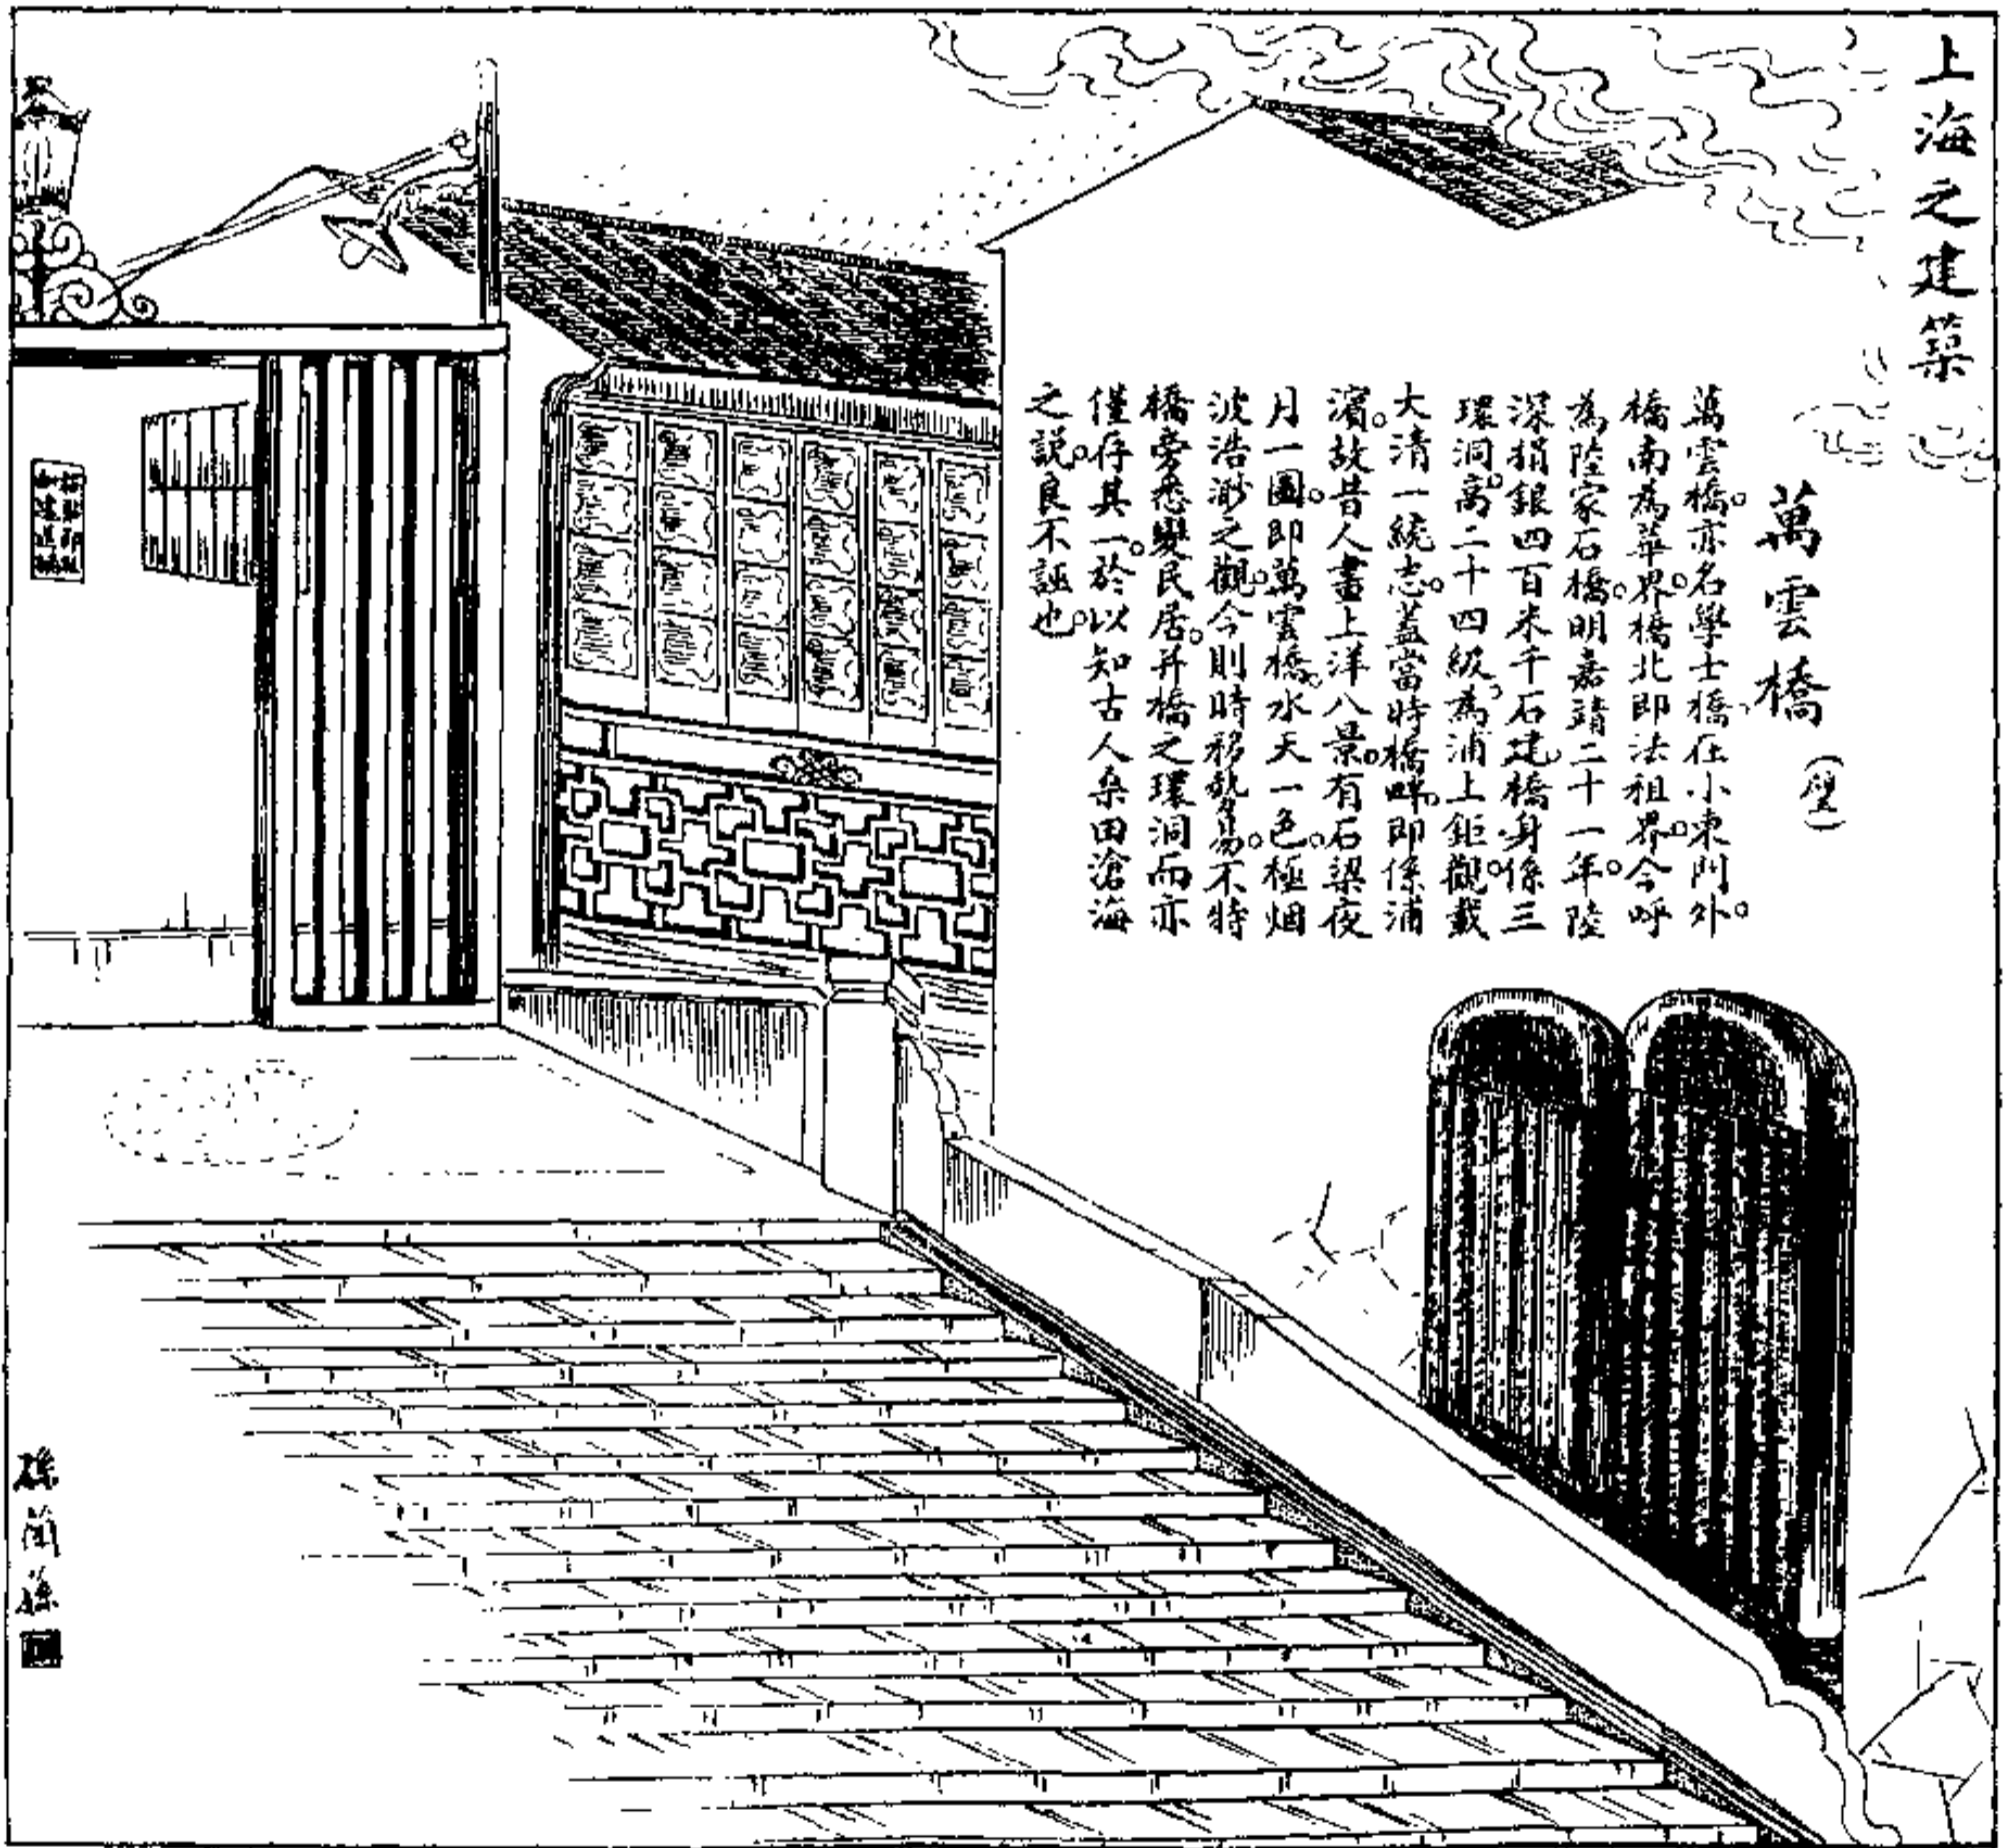 上海之建築
萬雲橋（壁）
萬雲橋。亦名學士橋、在小東門外。
橋南為華界。橋北即法租界。今呼
為陸家石橋。明嘉靖二十一年。陸
深捐銀四百米千石建橋身係三
環洞。高二十四級、為浦上鉅觀。載
大清一統志。蓋當時橋畔。即係浦
濱。故昔人畫上洋八景。有石梁夜
月一圖。即萬雲橋。水天一色。極烟
波浩渺之觀。今則時移勢易。不特
橋旁悉變民居。并橋之環洞而亦
僅存其一。於以知古人桑田滄海
之說。良不誣也。
孫蘭蓀